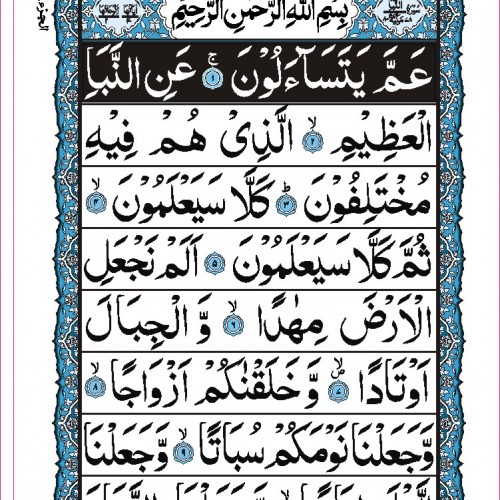 بِسْمِ اللهِ الرَّحْمٰنِ الرَّحِيْمِ
عَمَّ يَتَسَآءَلُوْنَ ۚ ﴿۱﴾ عَنِ النَّبَاِ
الْعَظِيْمِ ۙ ﴿۲﴾ الَّذِيْ هُمْ فِيْهِ
مُخْتَلِفُوْنَ ؕ ﴿۳﴾ كَلَّا سَيَعْلَمُوْنَ ۙ ﴿۴﴾
ثُمَّ كَلَّا سَيَعْلَمُوْنَ ﴿۵﴾ اَلَمْ نَجْعَلِ
الْاَرْضَ مِهٰدًا ۙ ﴿۶﴾ وَّ الْجِبَالَ
اَوْتَادًا ۪ۙ ﴿۷﴾ وَّ خَلَقْنٰكُمْ اَزْوَاجًا ۙ ﴿۸﴾
وَّ جَعَلْنَا نَوْمَكُمْ سُبَاتًا ۙ ﴿۹﴾ وَّ جَعَلْنَا